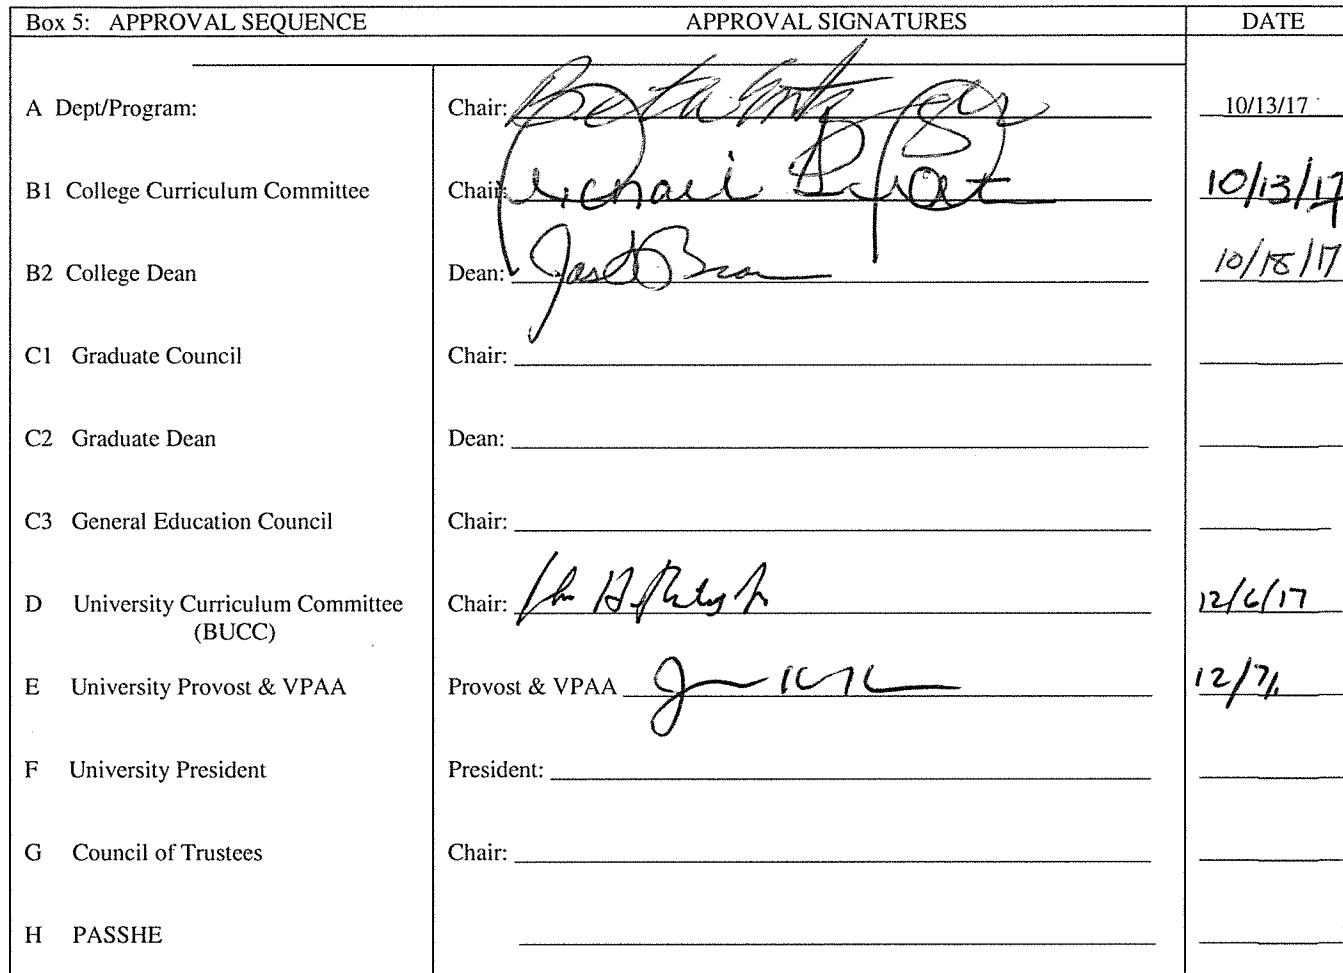 Box 5: APPROVAL SEQUENCE APPROVAL SIGNATURES DATE
A Dept/Program: Chair: 10/13/17
B1 College Curriculum Committee Chair: Michael 10/13/17
B2 College Dean Dean: Janet 10/18/17
C1 Graduate Council Chair:
C2 Graduate Dean Dean:
C3 General Education Council Chair:
D University Curriculum Committee Chair: 12/6/17
(BUCC)
E University Provost & VPAA Provost & VPAA 12/7/
F University President President:
G Council of Trustees Chair:
H PASSHE